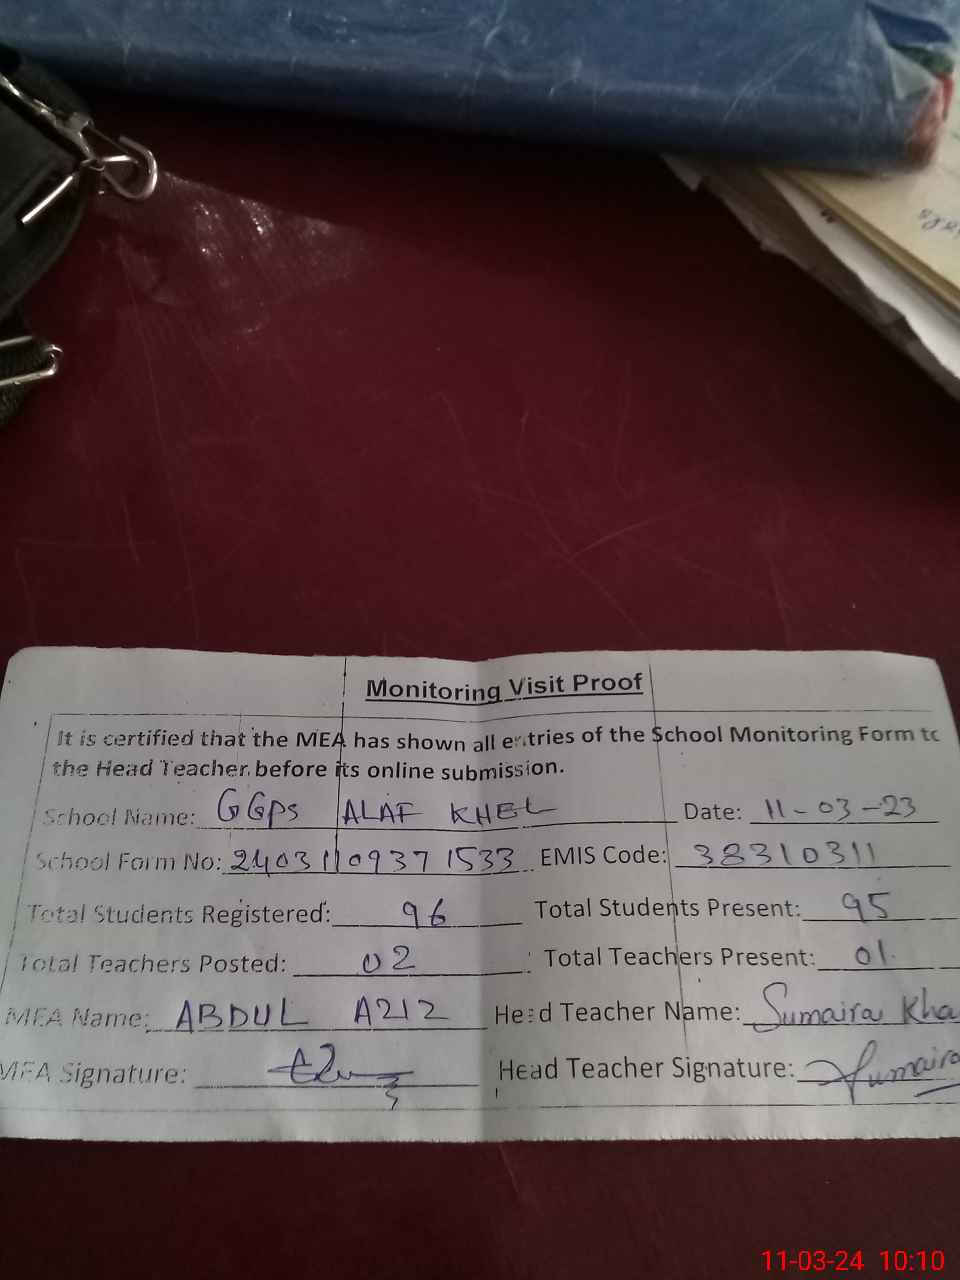 Monitoring Visit Proof
It is certified that the MEA has shown all entries of the School Monitoring Form to
the Head Teacher before its online submission.
School Name: GGPS ALAF KHEL Date: 11-03-23
School Form No: 24031109371533 EMIS Code: 38310311
Total Students Registered: 96 Total Students Present: 95
Total Teachers Posted: 02 Total Teachers Present: 01.
MEA Name: ABDUL AZIZ Head Teacher Name: Sumaira Kha
MEA Signature: Head Teacher Signature: Sumaira
11-03-24 10:10